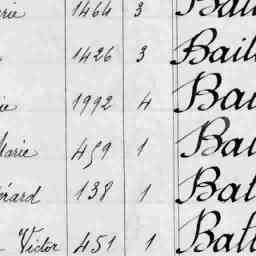 rie 1464 3 Bail
1426 3 Bail
ie 1992 4 Bai
Marie 459 1 Bal
érard 138 1 Bal
Victor 451 1 Bal